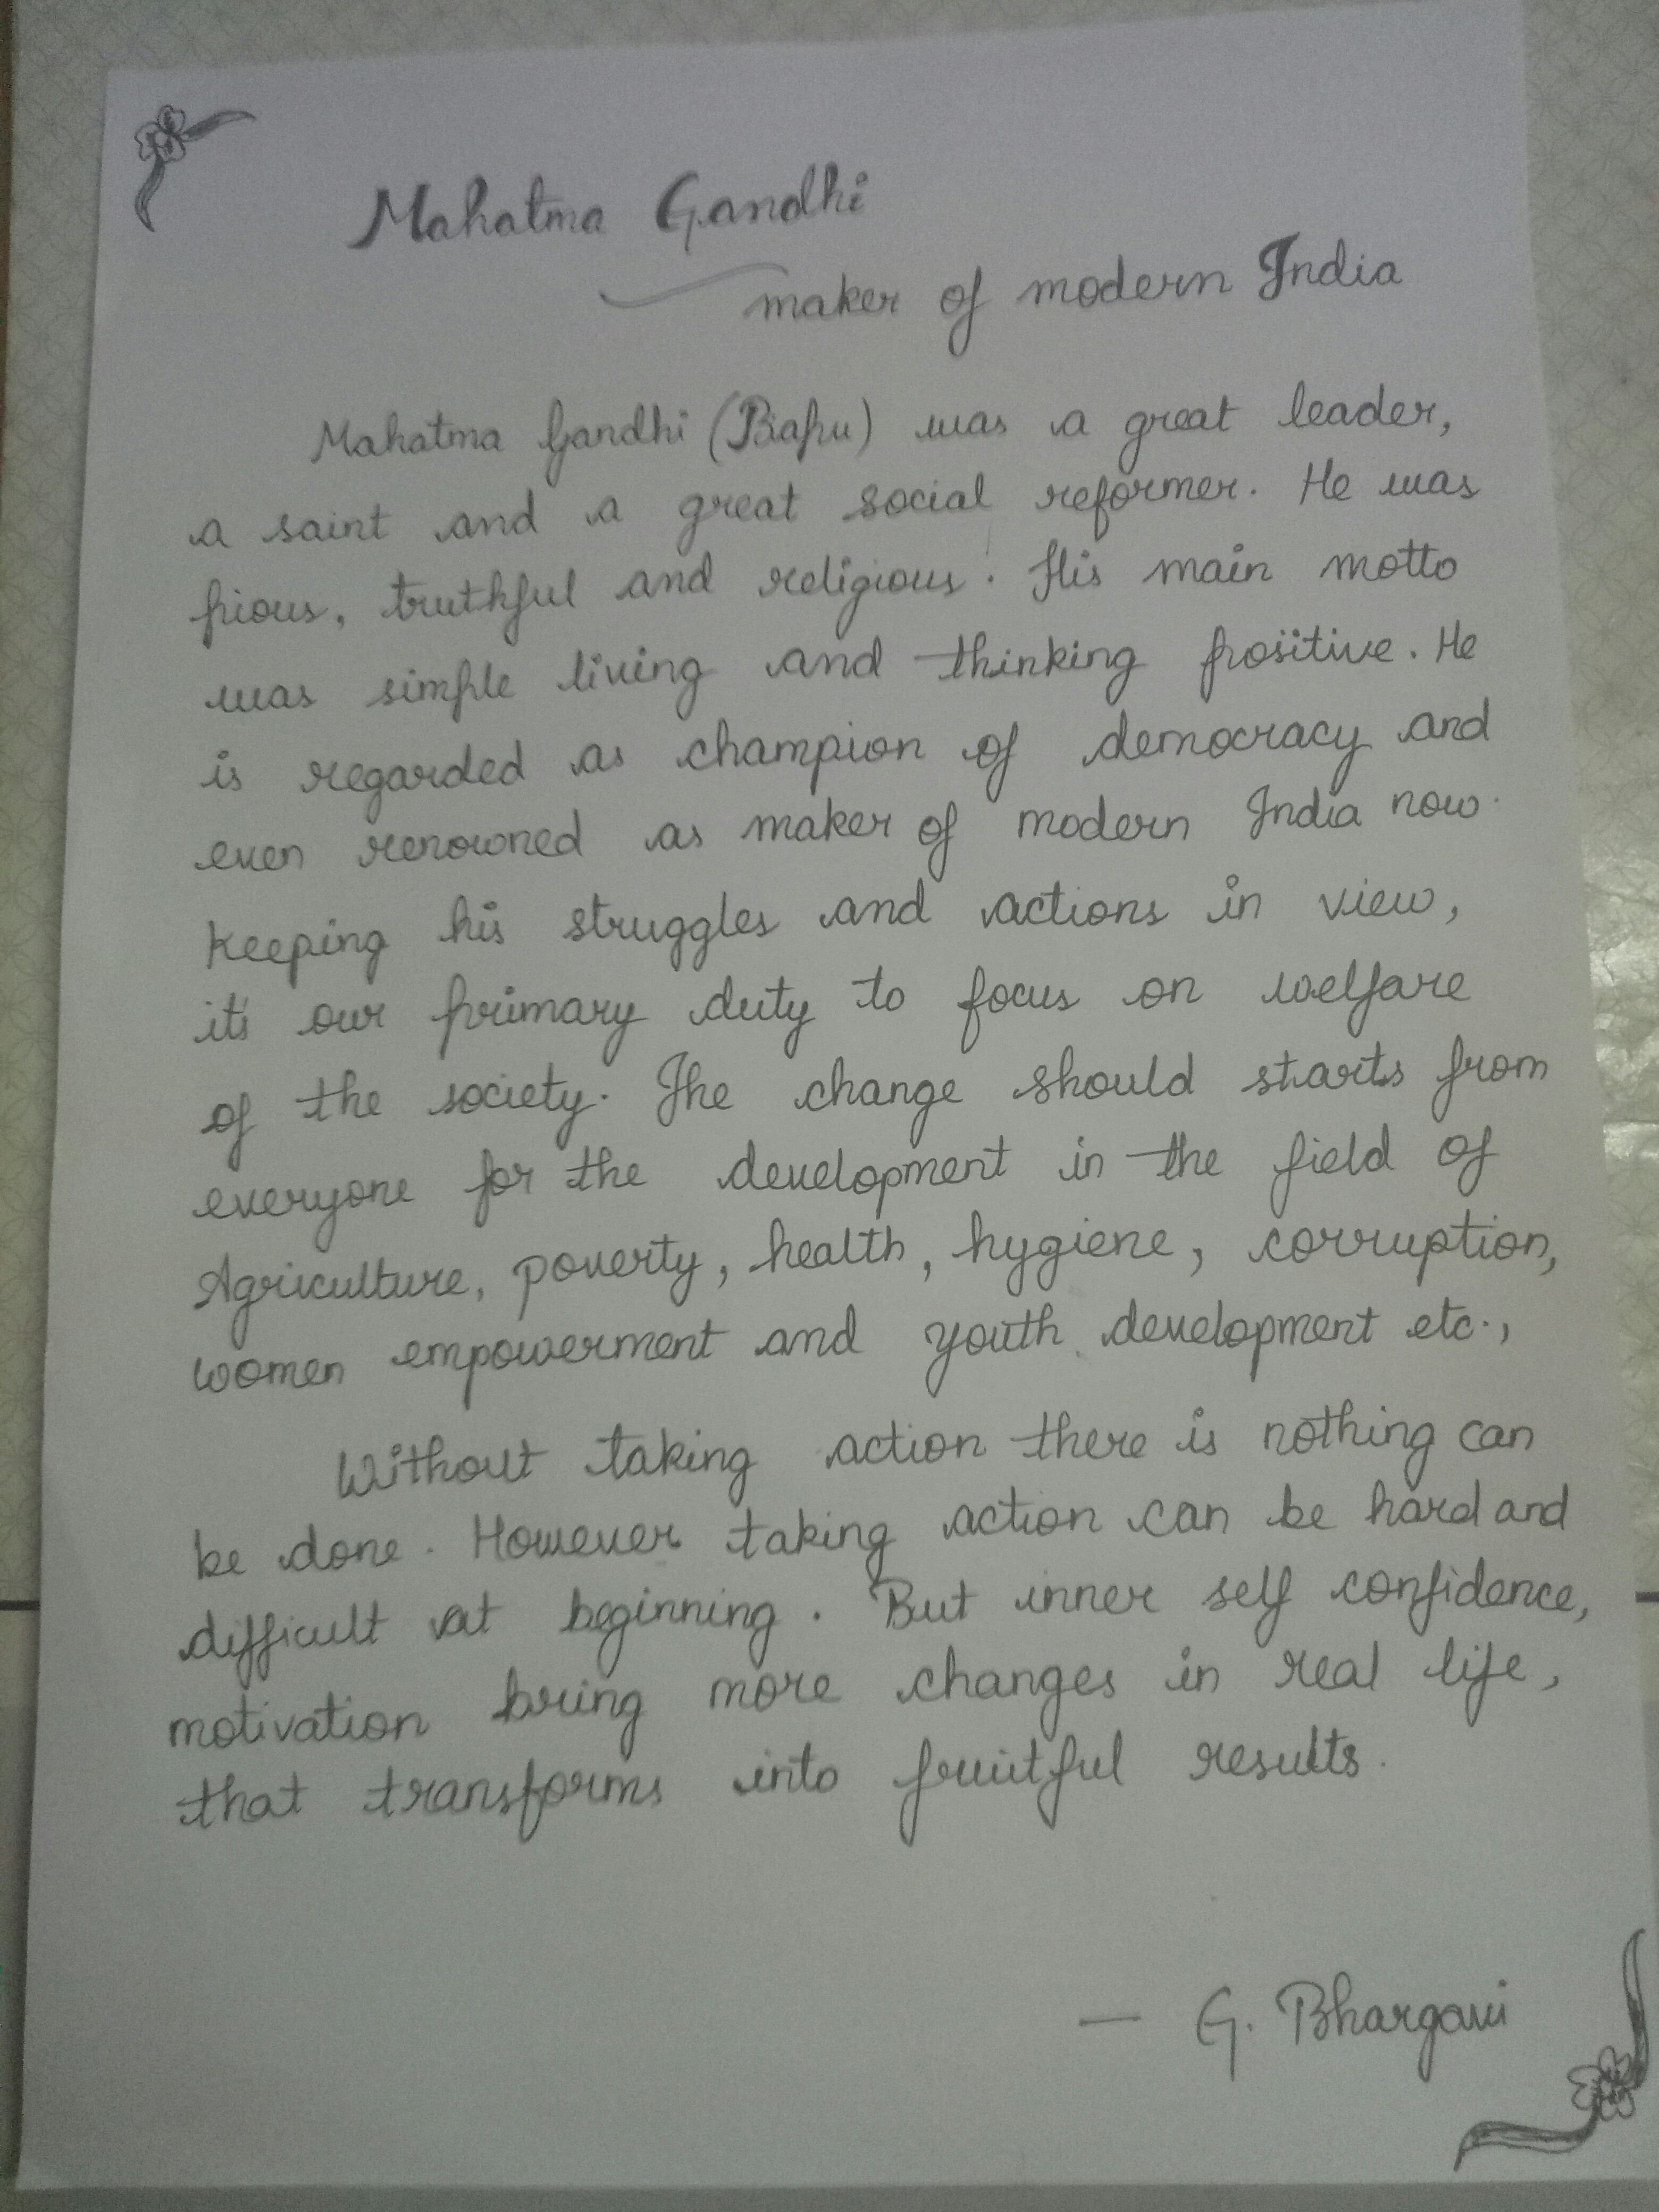 Mahatma Gandhi
maker of modern India
Mahatma Gandhi (Bapu) was a great leader,
a saint and a great social reformer. He was
pious, truthful and religious. His main motto
was simple living and thinking positive. He
is regarded as champion of democracy and
even renowned as maker of modern India now.
Keeping his struggles and actions in view,
it's our primary duty to focus on welfare
of the society. The change should starts from
everyone for the development in the field of
Agriculture, poverty, health, hygiene, corruption,
women empowerment and youth development etc.,
Without taking action there is nothing can
be done. However taking action can be hard and
difficult at beginning. But inner self confidence,
motivation bring more changes in real life,
that transforms into fruitful results.
— G. Bhargavi